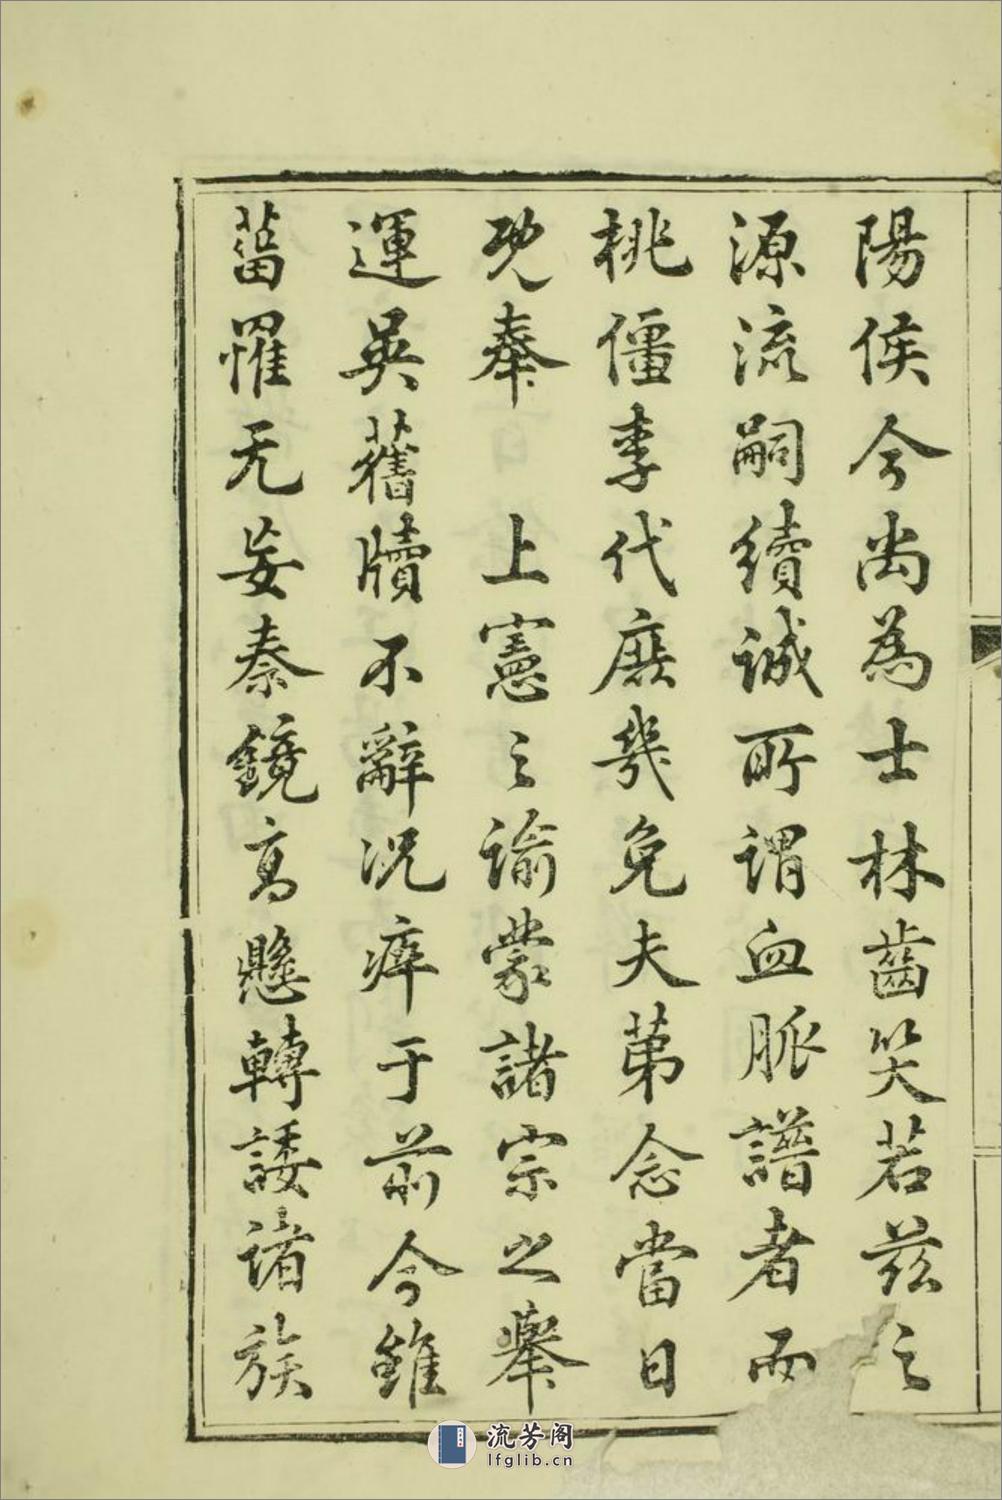 陽侯今尚為士林齒笑若茲之
源流嗣續誠所謂血脈譜者而
桃僵李代庶幾免夫第念當日
既奉 上憲之諭蒙諸宗之舉
運吳舊牘不辭況瘁于前今雖
菑罹无妄秦鏡高懸轉諉諸族
流芳阁
lfglib.cn